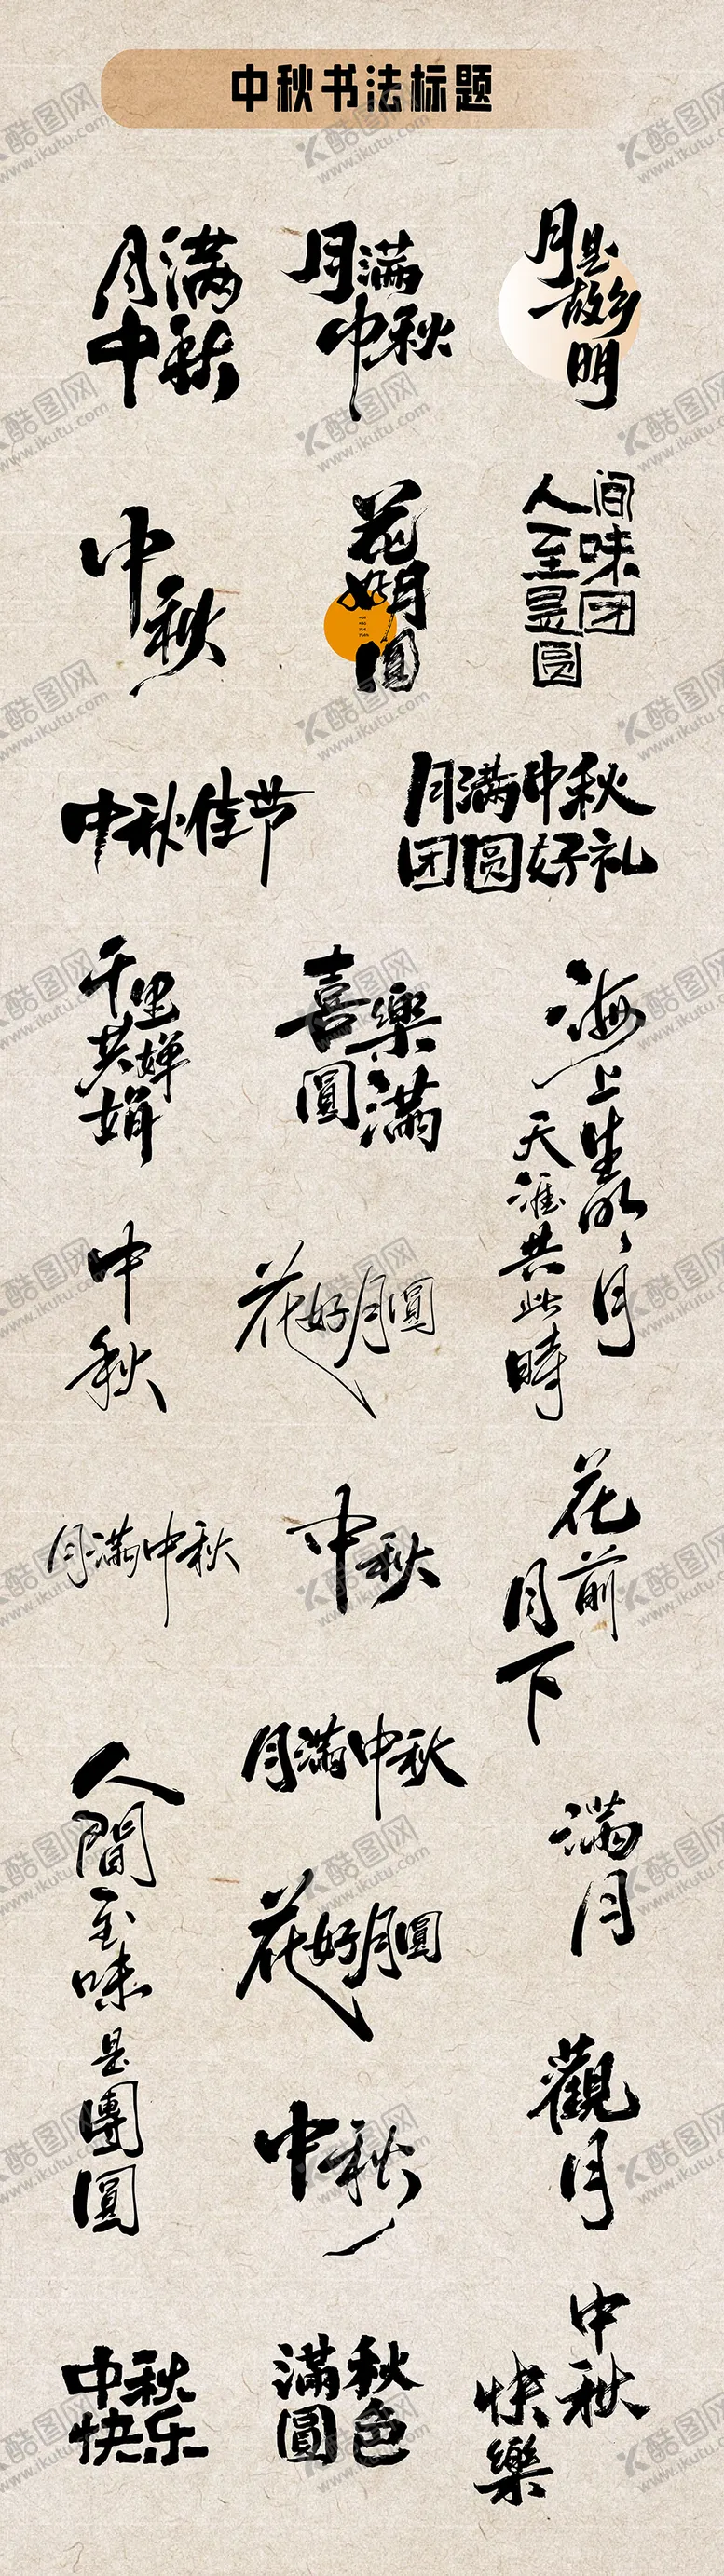 中秋书法标题
月满
中秋
月满
中秋
月是
故乡
明
中
秋
花
好月
圓
人间
至味
是团
圆
中秋佳节
月满中秋
团圆好礼
千里
共婵
娟
喜樂
圓滿
海上生明月
天涯共此時
中
秋
花好月圓
月满中秋
中秋
花前
月下
月滿中秋
人間至味是團圓
花好月圓
满月
中秋
觀月
中秋
快乐
滿秋
圓色
中秋
快樂
酷图网
www.ikutu.com